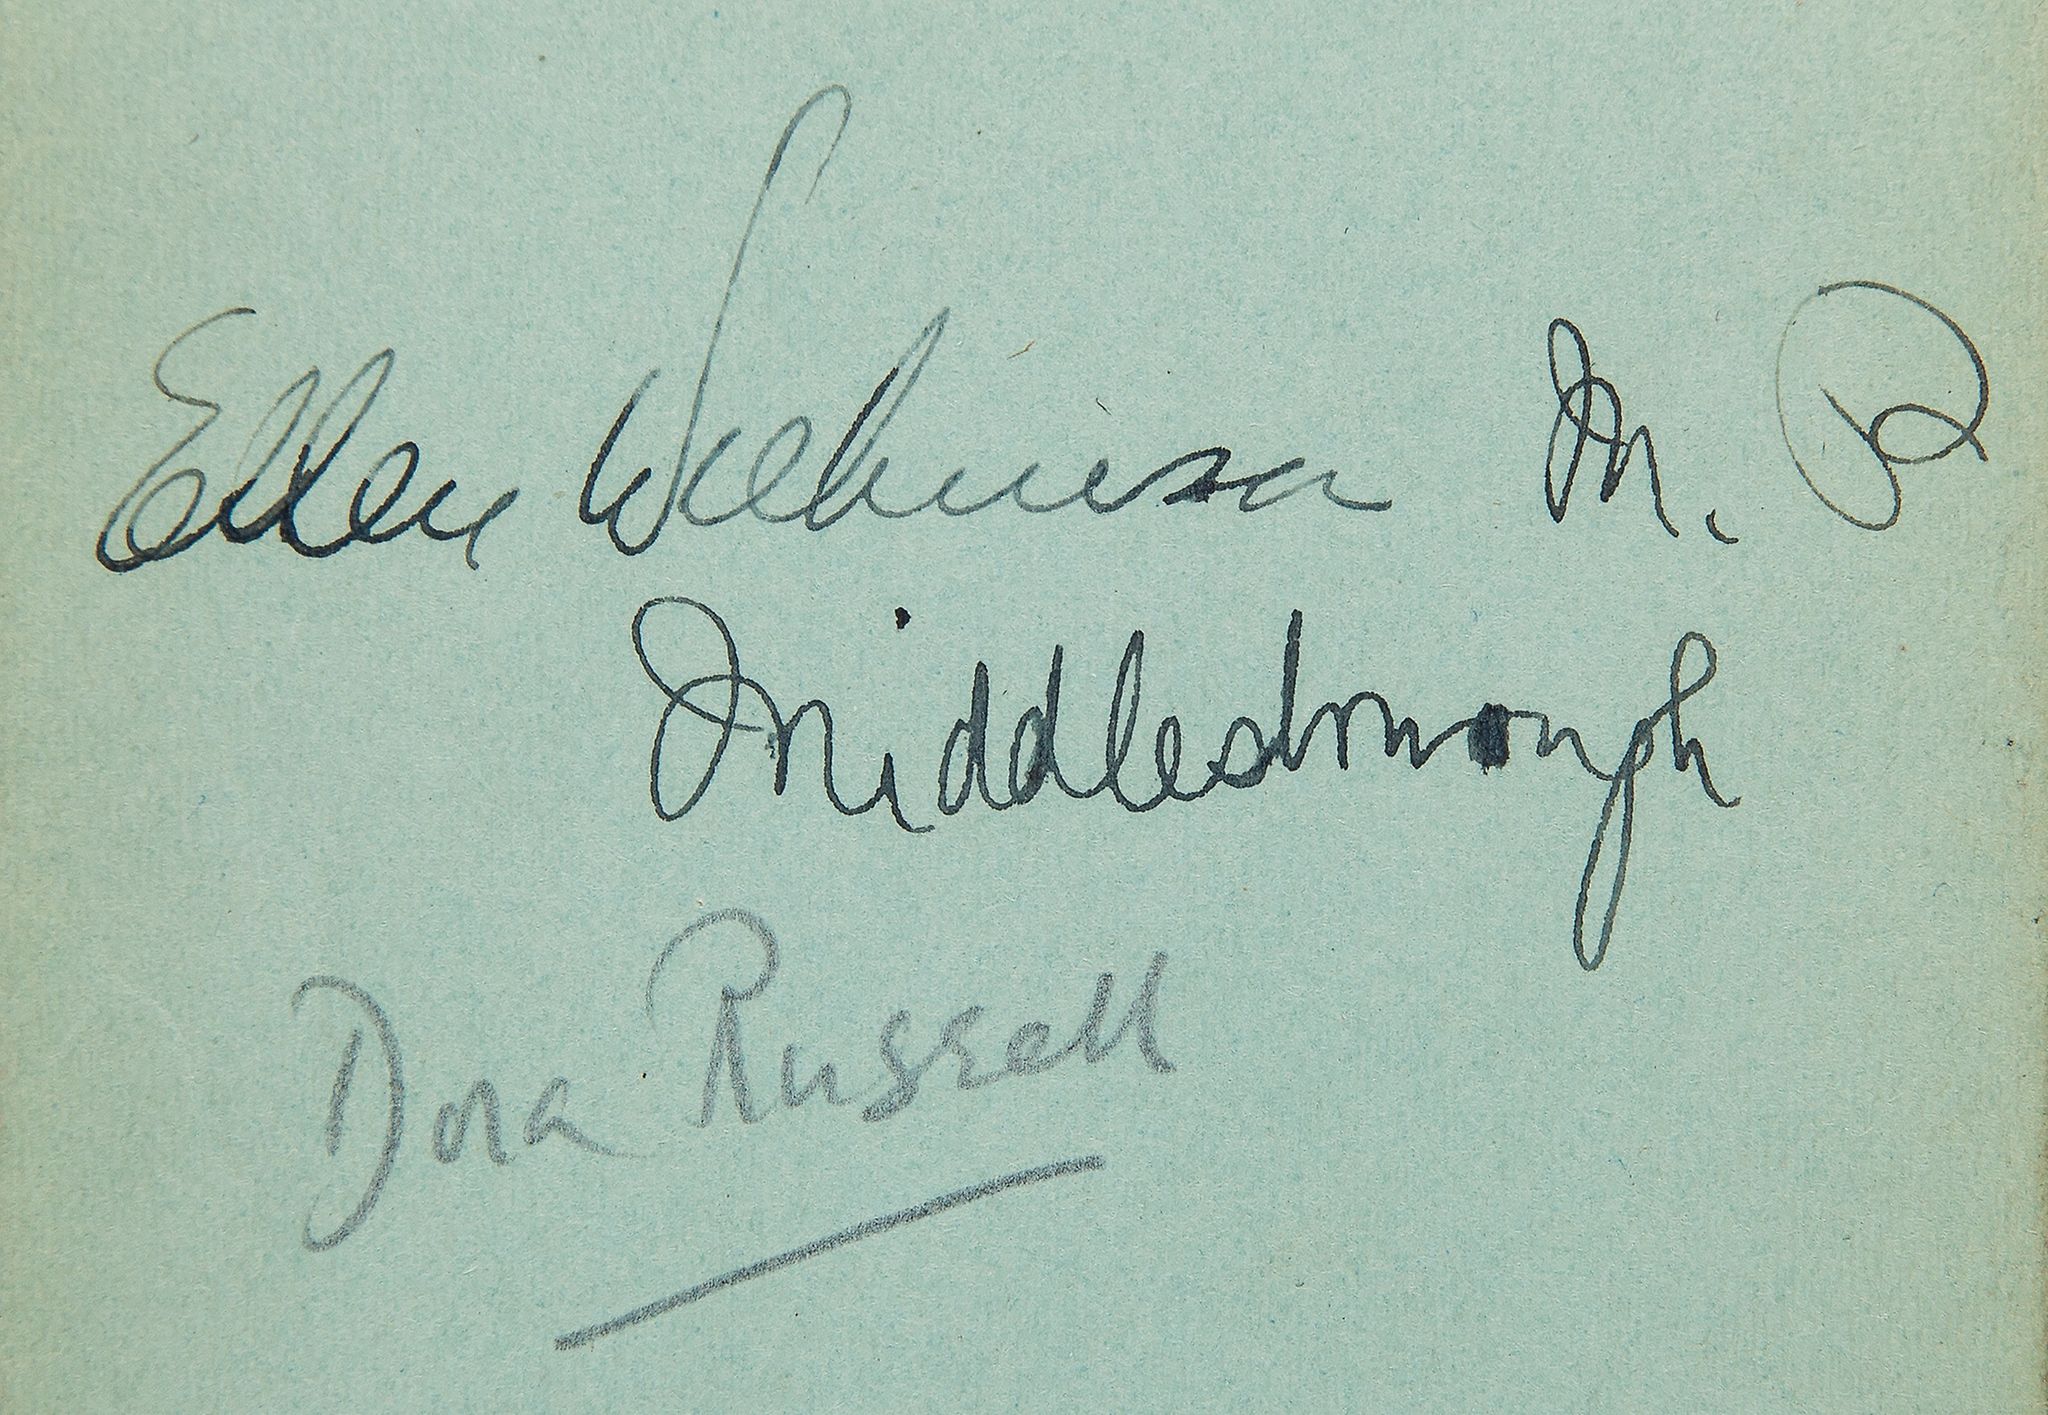 Ellen Wilkinson M.P
Middlesbrough
Dora Russell